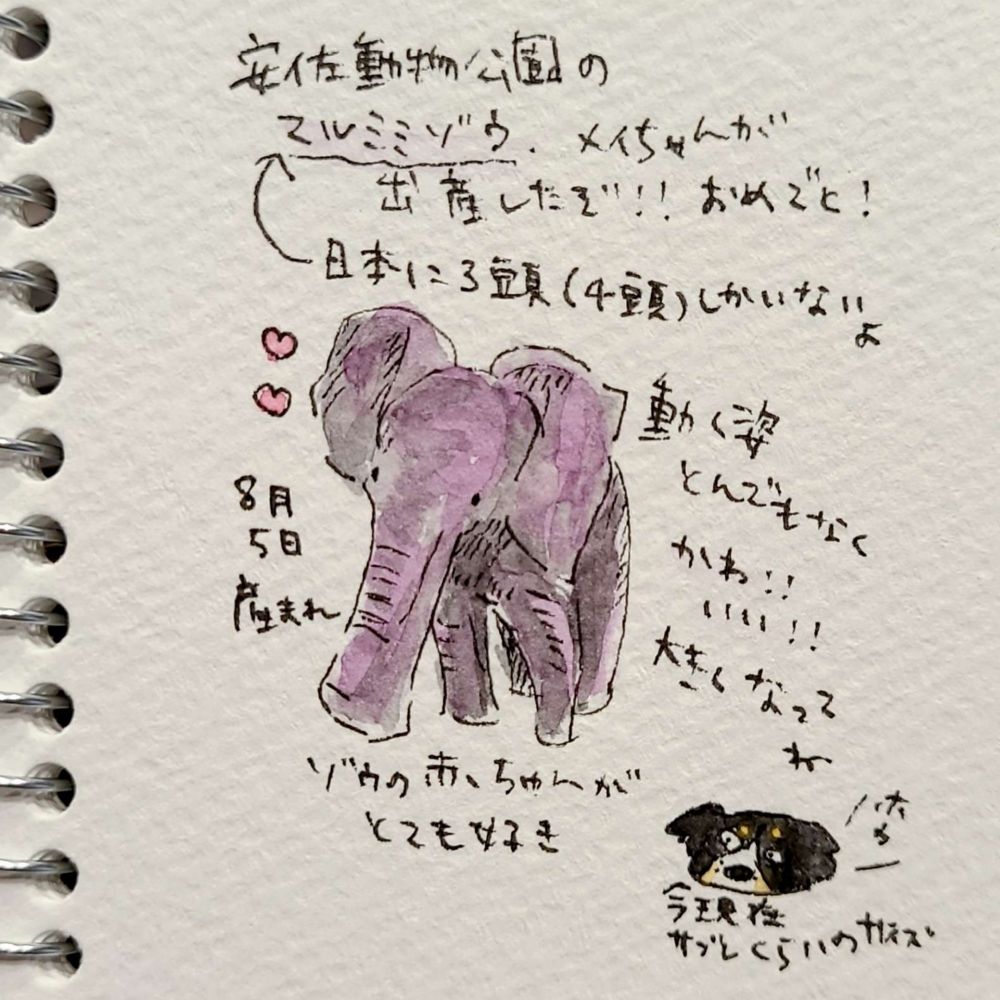 安佐動物公園の
マルミミゾウ、メイちゃんが
出産したぞ!! おめでと!
日本に3頭(4頭)しかいないよ
動く姿
とんでもなく
かわ!!
いい!!
大きくなって
ね
8月
5日
産まれ
ゾウの赤ちゃんが
とても好き
今現在
サブレくらいのサイズ